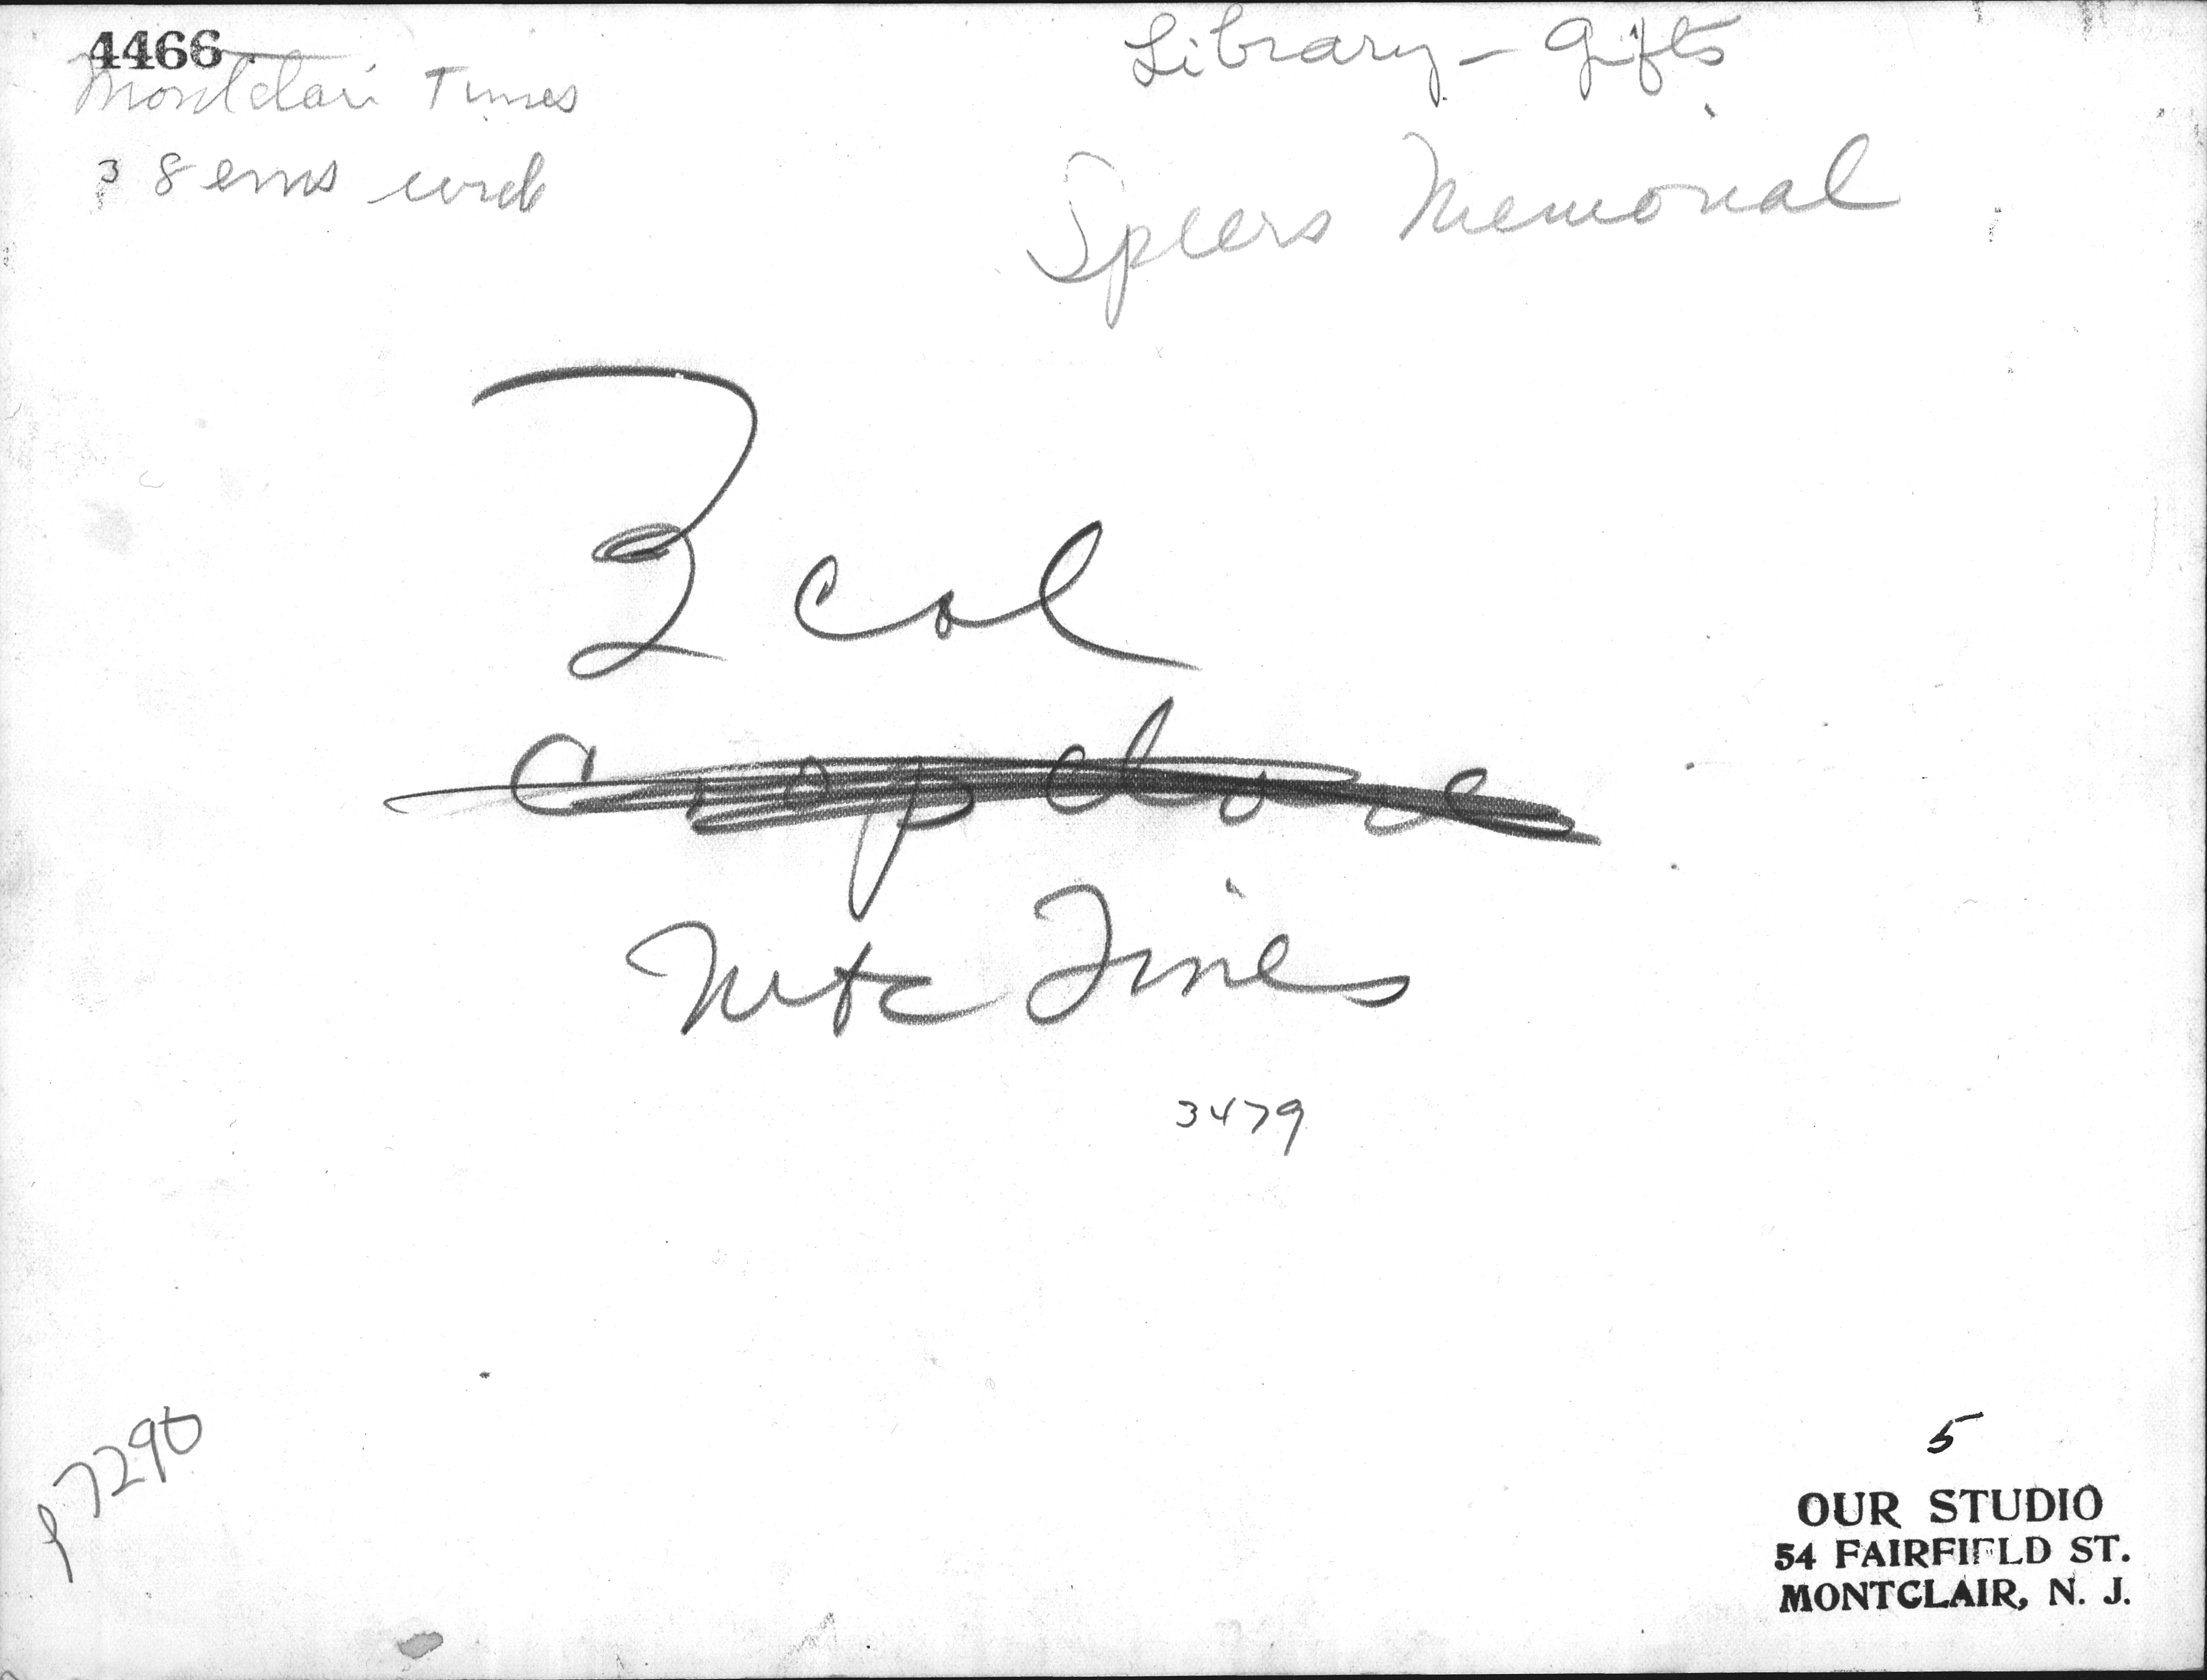 4466
Montclair Times
3 8 ems
Library - Gifts
Speers Memorial
3 col
Crop close
Mtc Times
3479
P7290
5
OUR STUDIO
54 FAIRFIELD ST.
MONTCLAIR, N. J.